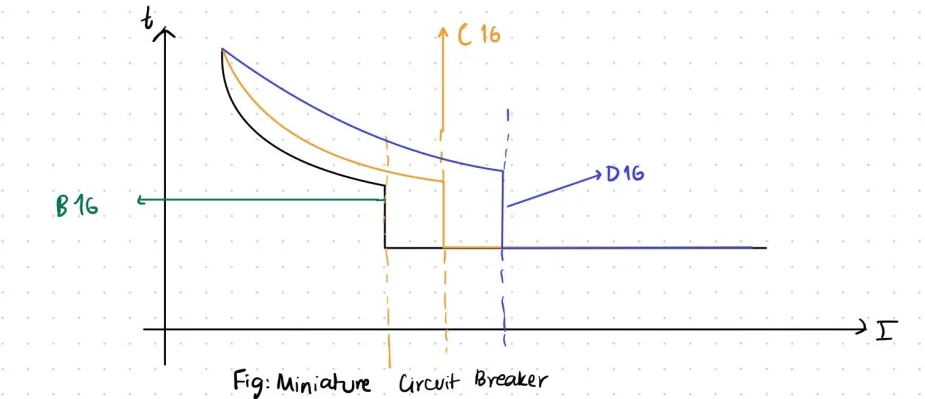 t
C 16
D16
B 16
I
Fig: Miniature Circuit Breaker